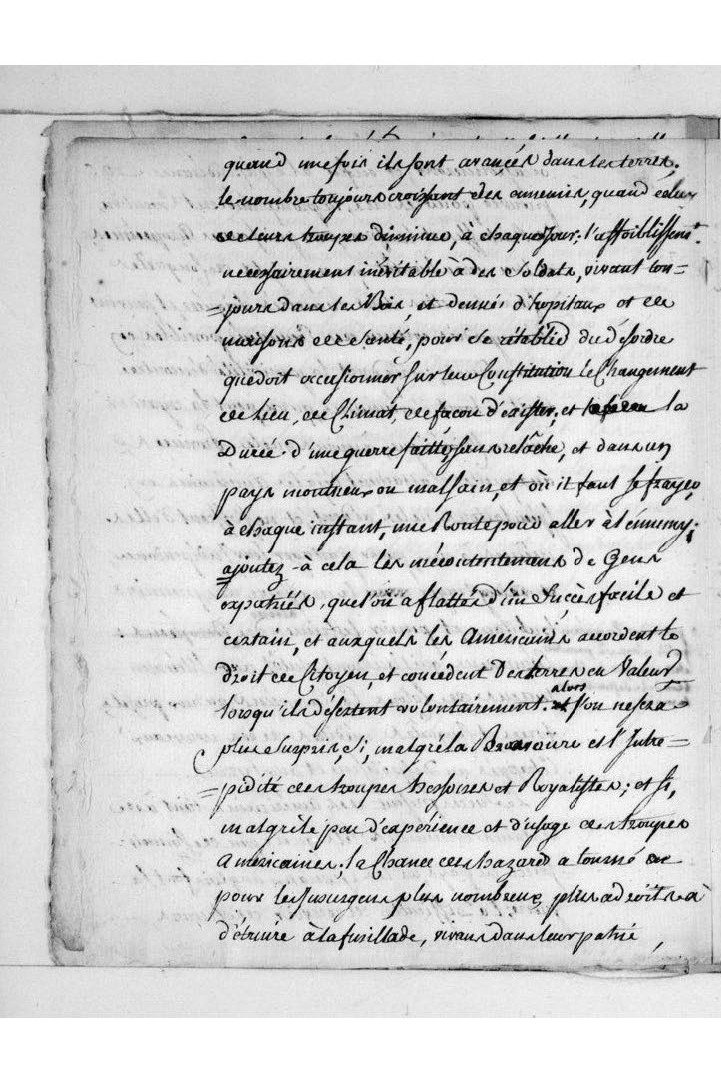 quand une fois ils sont avancés dans les terres.
le nombre toujours croissant des ennemis, quand celuy
de leurs troupes diminue, à chaque jour; l'affoiblissem.t
necessairement inévitable à des Soldats, vivant tou=
=jours dans les Bois, et dennés d'hopitaux et de
maisons de Santé, pour se rétablir du désordre
que doit occasionner sur leur Constitution le Changement
de Lieu, de Climat, de façon d'exister; et la
Durée d'une guerre faitte, sans relâche, et dans un
pays montueux ou malsain, et où il faut se frayer,
à chaque instant, une Route pour aller à l'ennemy;
ajoutez à cela les mécontentemens de Gens
expatriés, que l'on a flattés d'un Succès facile et
certain, et auxquels les Américains accordent le
droit de Citoyen, et concèdent Des terres en Valeur
lorsqu'ils désertent volontairement. alors l'on ne sera
plus Surpris, Si, malgré la Bravoure et l'Intré=
=pidité des troupes hessoises et Royalistes; et si,
malgré le peu d'expérience et d'usage des troupes
américaines, la Chance des hazards a tourné
pour les Insurgens plus nombreux, plus adroits à
détruire à la fusillade, vivans dans leur patrie,